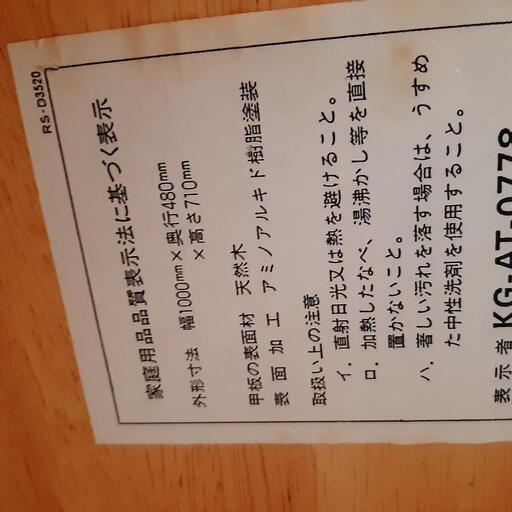 RS-D3520
家庭用品品質表示法に基づく表示
外形寸法 幅1000mm×奥行480mm
×高さ710mm
甲板の表面材 天然木
表面加工 アミノアルキド樹脂塗装
取扱い上の注意
イ. 直射日光又は熱を避けること。
ロ. 加熱したなべ、湯沸かし等を直接
置かないこと。
ハ. 著しい汚れを落す場合は、うすめ
た中性洗剤を使用すること。
表示者 KG-AT-0778